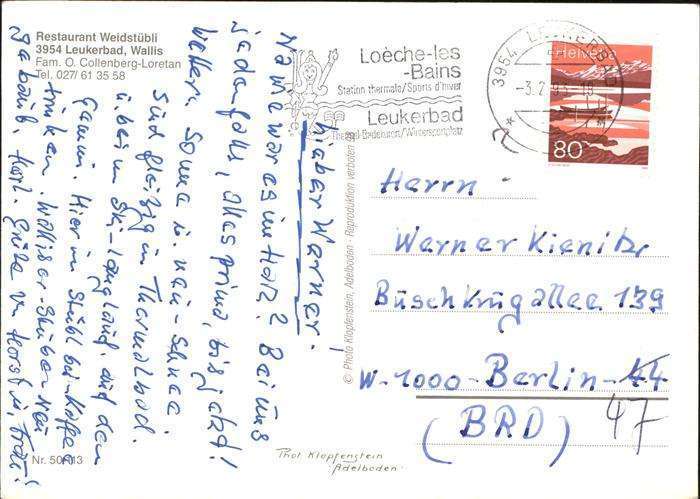 Restaurant Weidstübli
3954 Leukerbad, Wallis
Fam. O. Collenberg-Loretan
Tel. 027/ 61 35 58
Loèche-les
-Bains
Station thermale/Sports d'hiver
Leukerbad
Thermal-Badekuren/Wintersportplatz
3954 LEUKERBAD
-3.2.93-19
Helvetia
80
Lieber Werner!
Na wie war es im Harz? Bei uns
jedenfalls, alles prima, bis jetzt!
Wetter, Sonne u. neu-Schnee.
Sind fleißig im Thermalbad.
u. beim Ski-Langlauf auf den
Gemmi. Hier im Stübl bei Kaffee
trinken. Walliser-Stuben Neu
gebaut. Herzl. Grüße von Horst u. Frau!
Herrn
Werner Kienitz
Buschkrugallee 139
W-1000-Berlin-44
47
(BRD)
© Photo Klopfenstein, Adelboden · Reproduktion verboten
Phot Klopfenstein
Adelboden
Nr. 50